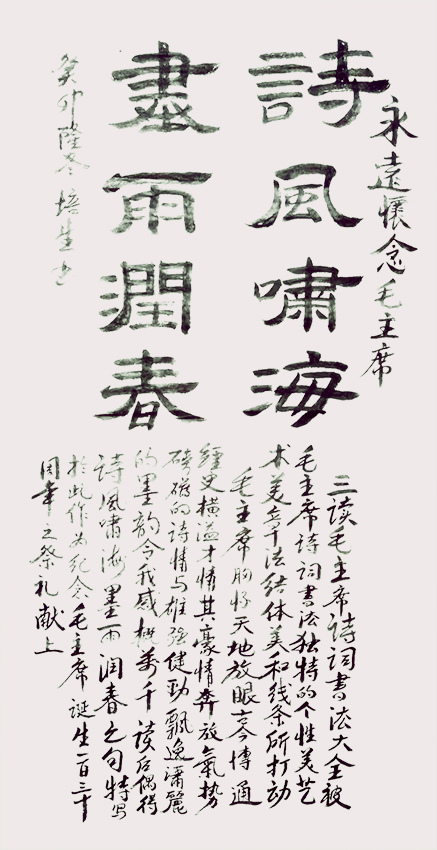 永遠懷念毛主席
詩風嘯海
墨雨潤春
癸卯隆冬培生书
三读毛主席诗词書法大全被
毛主席诗词書法独特的个性美艺
术美章法结体美和线条所打动
毛主席胸怀天地放眼古今博通
經史横溢才情其豪情奔放氣势
磅礴的诗情与雄强健劲飄逸瀟麗
的墨韵令我感慨萬千读后偶得
詩風嘯海墨雨润春之句特写
於此作为纪念毛主席诞生一百三十
周年之祭礼献上